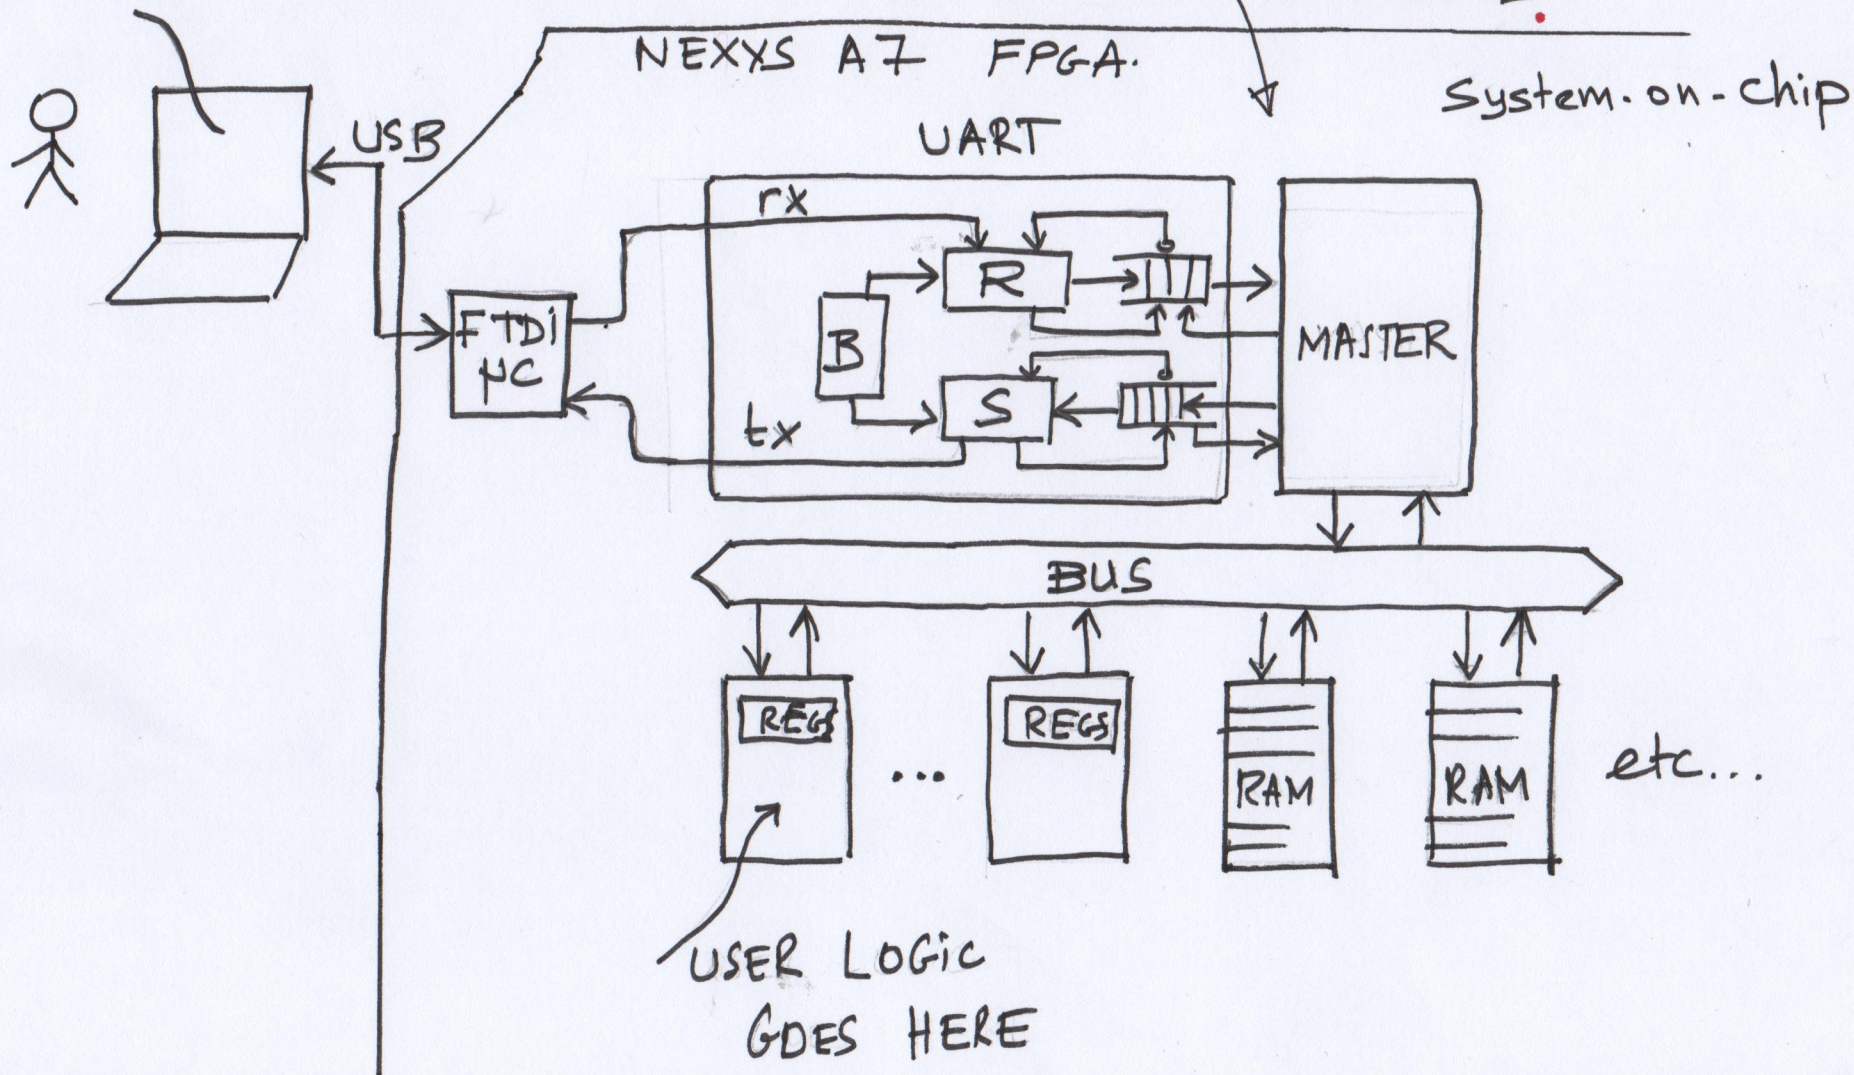 NEXYS A7 FPGA.
System-on-Chip
USB
UART
rx
R
FTDi
µC
B
MASTER
S
tx
BUS
REGS
REGS
...
RAM
RAM
etc...
USER LOGiC
GOES HERE